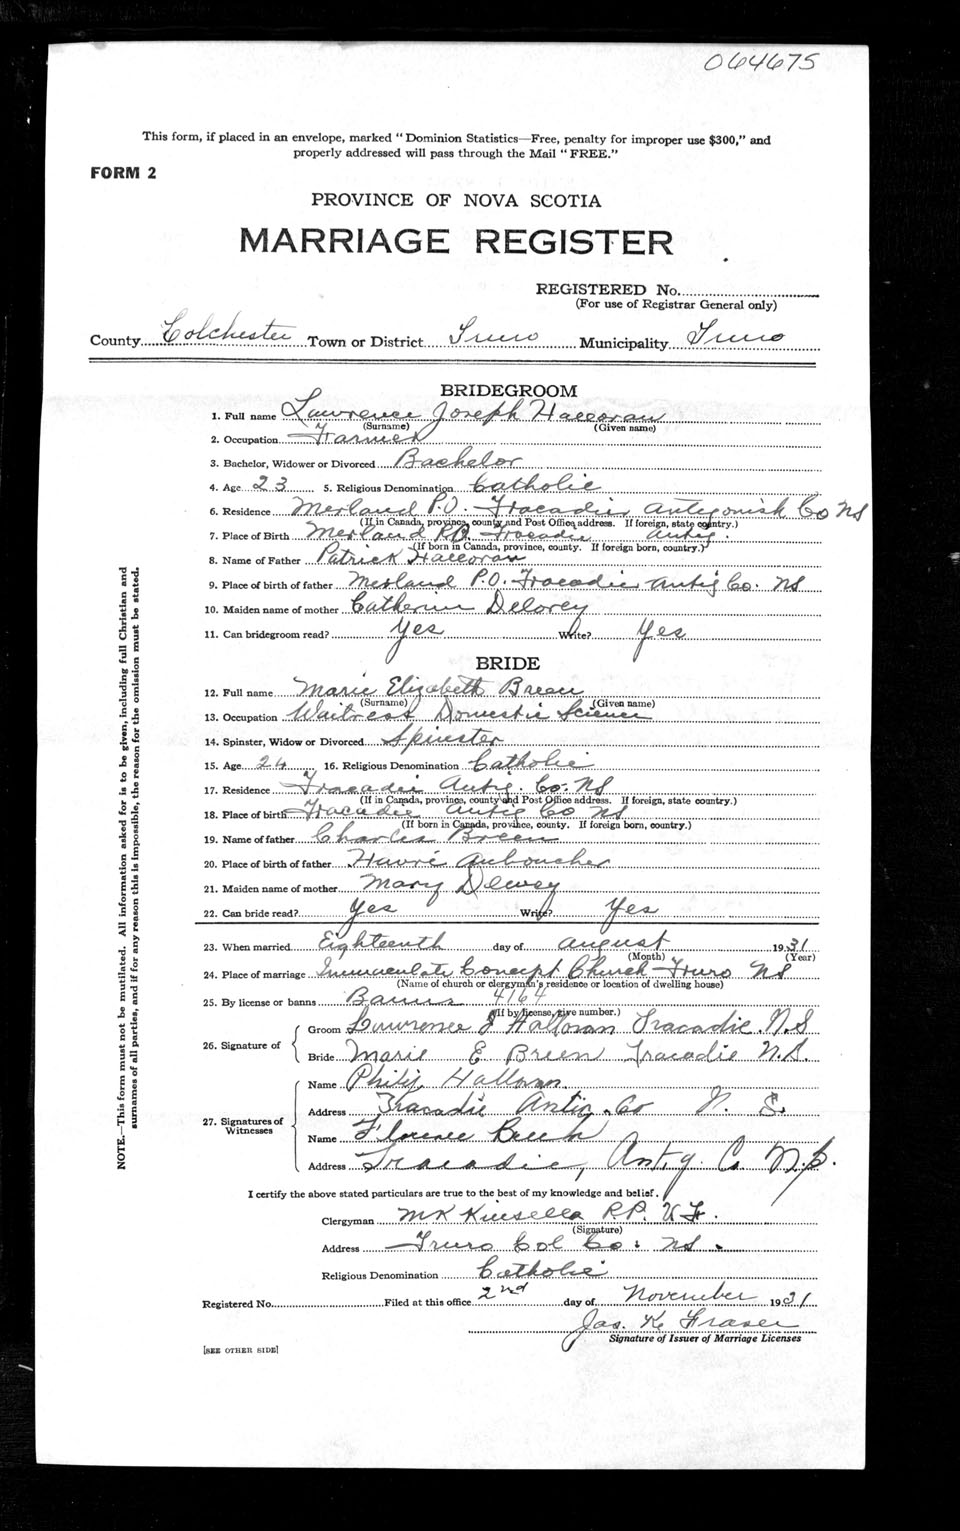 064675
This form, if placed in an envelope, marked "Dominion Statistics—Free, penalty for improper use $300," and
properly addressed will pass through the Mail "FREE."
FORM 2
PROVINCE OF NOVA SCOTIA
MARRIAGE REGISTER
REGISTERED No.
(For use of Registrar General only)
County Colchester Town or District Truro Municipality Truro
BRIDEGROOM
1. Full name Lawrence Joseph Halloran
(Surname) (Given name)
2. Occupation Farmer
3. Bachelor, Widower or Divorced Bachelor
4. Age 23 5. Religious Denomination Catholic
6. Residence Merland P.O. Tracadie Antigonish Co NS
(If in Canada, province, county and Post Office address. If foreign, state country.)
7. Place of Birth Merland P.O. Tracadie Antig.
(If born in Canada, province, county. If foreign born, country.)
8. Name of Father Patrick Halloran
9. Place of birth of father Merland P.O. Tracadie Antig Co. NS
10. Maiden name of mother Catherin Delorey
11. Can bridegroom read? Yes Write? Yes
BRIDE
12. Full name Marie Elizabeth Breen
(Surname) (Given name)
13. Occupation Waitress Domestic Science
14. Spinster, Widow or Divorced Spinster
15. Age 24 16. Religious Denomination Catholic
17. Residence Tracadie Antig. Co. NS
(If in Canada, province, county and Post Office address. If foreign, state country.)
18. Place of birth Tracadie Antig Co NS
(If born in Canada, province, county. If foreign born, country.)
19. Name of father Charles Breen
20. Place of birth of father Havre Auboucher
21. Maiden name of mother Mary
22. Can bride read? Yes Write? Yes
23. When married Eighteenth day of August 1931
(Month) (Year)
24. Place of marriage Immaculate Concept Church Truro NS
(Name of church or clergyman's residence or location of dwelling house)
25. By license or banns Banns 4164
(If by license, give number.)
26. Signature of
Groom Lawrence J Halloran Tracadie. N.S
Bride Marie E Breen Tracadie N.S.
27. Signatures of Witnesses
Name Philip Halloran
Address Tracadie Antig. Co N. S.
Name Florence Breen
Address Tracadie, Antig. Co N.S.
I certify the above stated particulars are true to the best of my knowledge and belief.
Clergyman Kinsella
(Signature)
Address Truro Col Co. NS.
Religious Denomination Catholic
Registered No. Filed at this office 2nd day of November 1931
Jas. K. Fraser
Signature of Issuer of Marriage Licenses
[SEE OTHER SIDE]
NOTE.—This form must not be mutilated. All information asked for is to be given, including full Christian and
surnames of all parties, and if for any reason this is impossible, the reason for the omission must be stated.